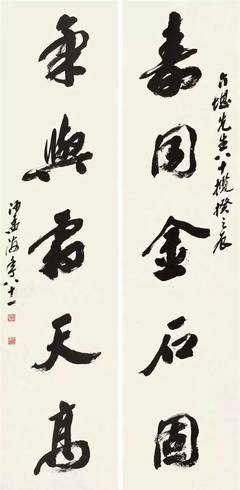 介堪先生八十攬揆之辰
壽同金石固
氣與霜天高
沙孟海年八十一